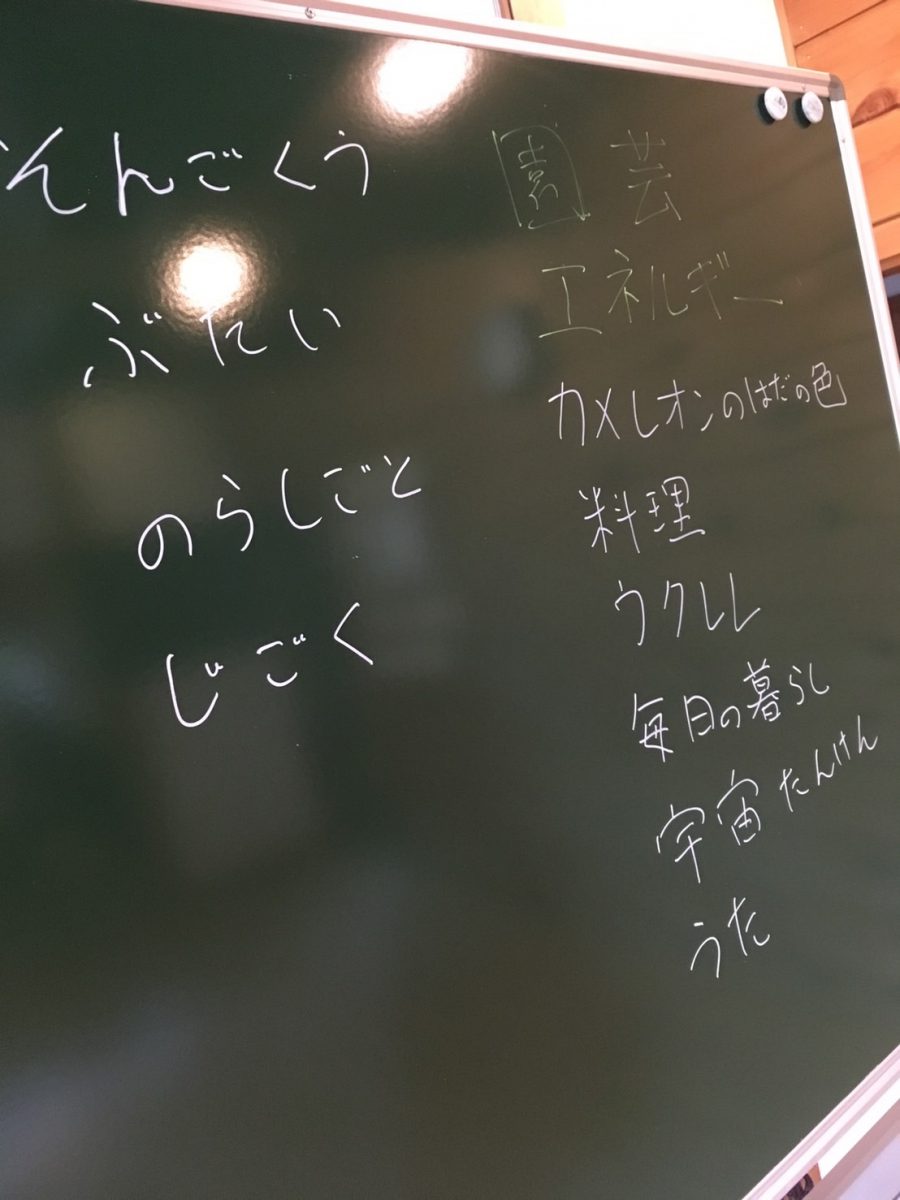 そんごくう
ぶたい
のらしごと
じごく
園芸
エネルギー
カメレオンのはだの色
料理
ウクレレ
毎日の暮らし
宇宙たんけん
うた